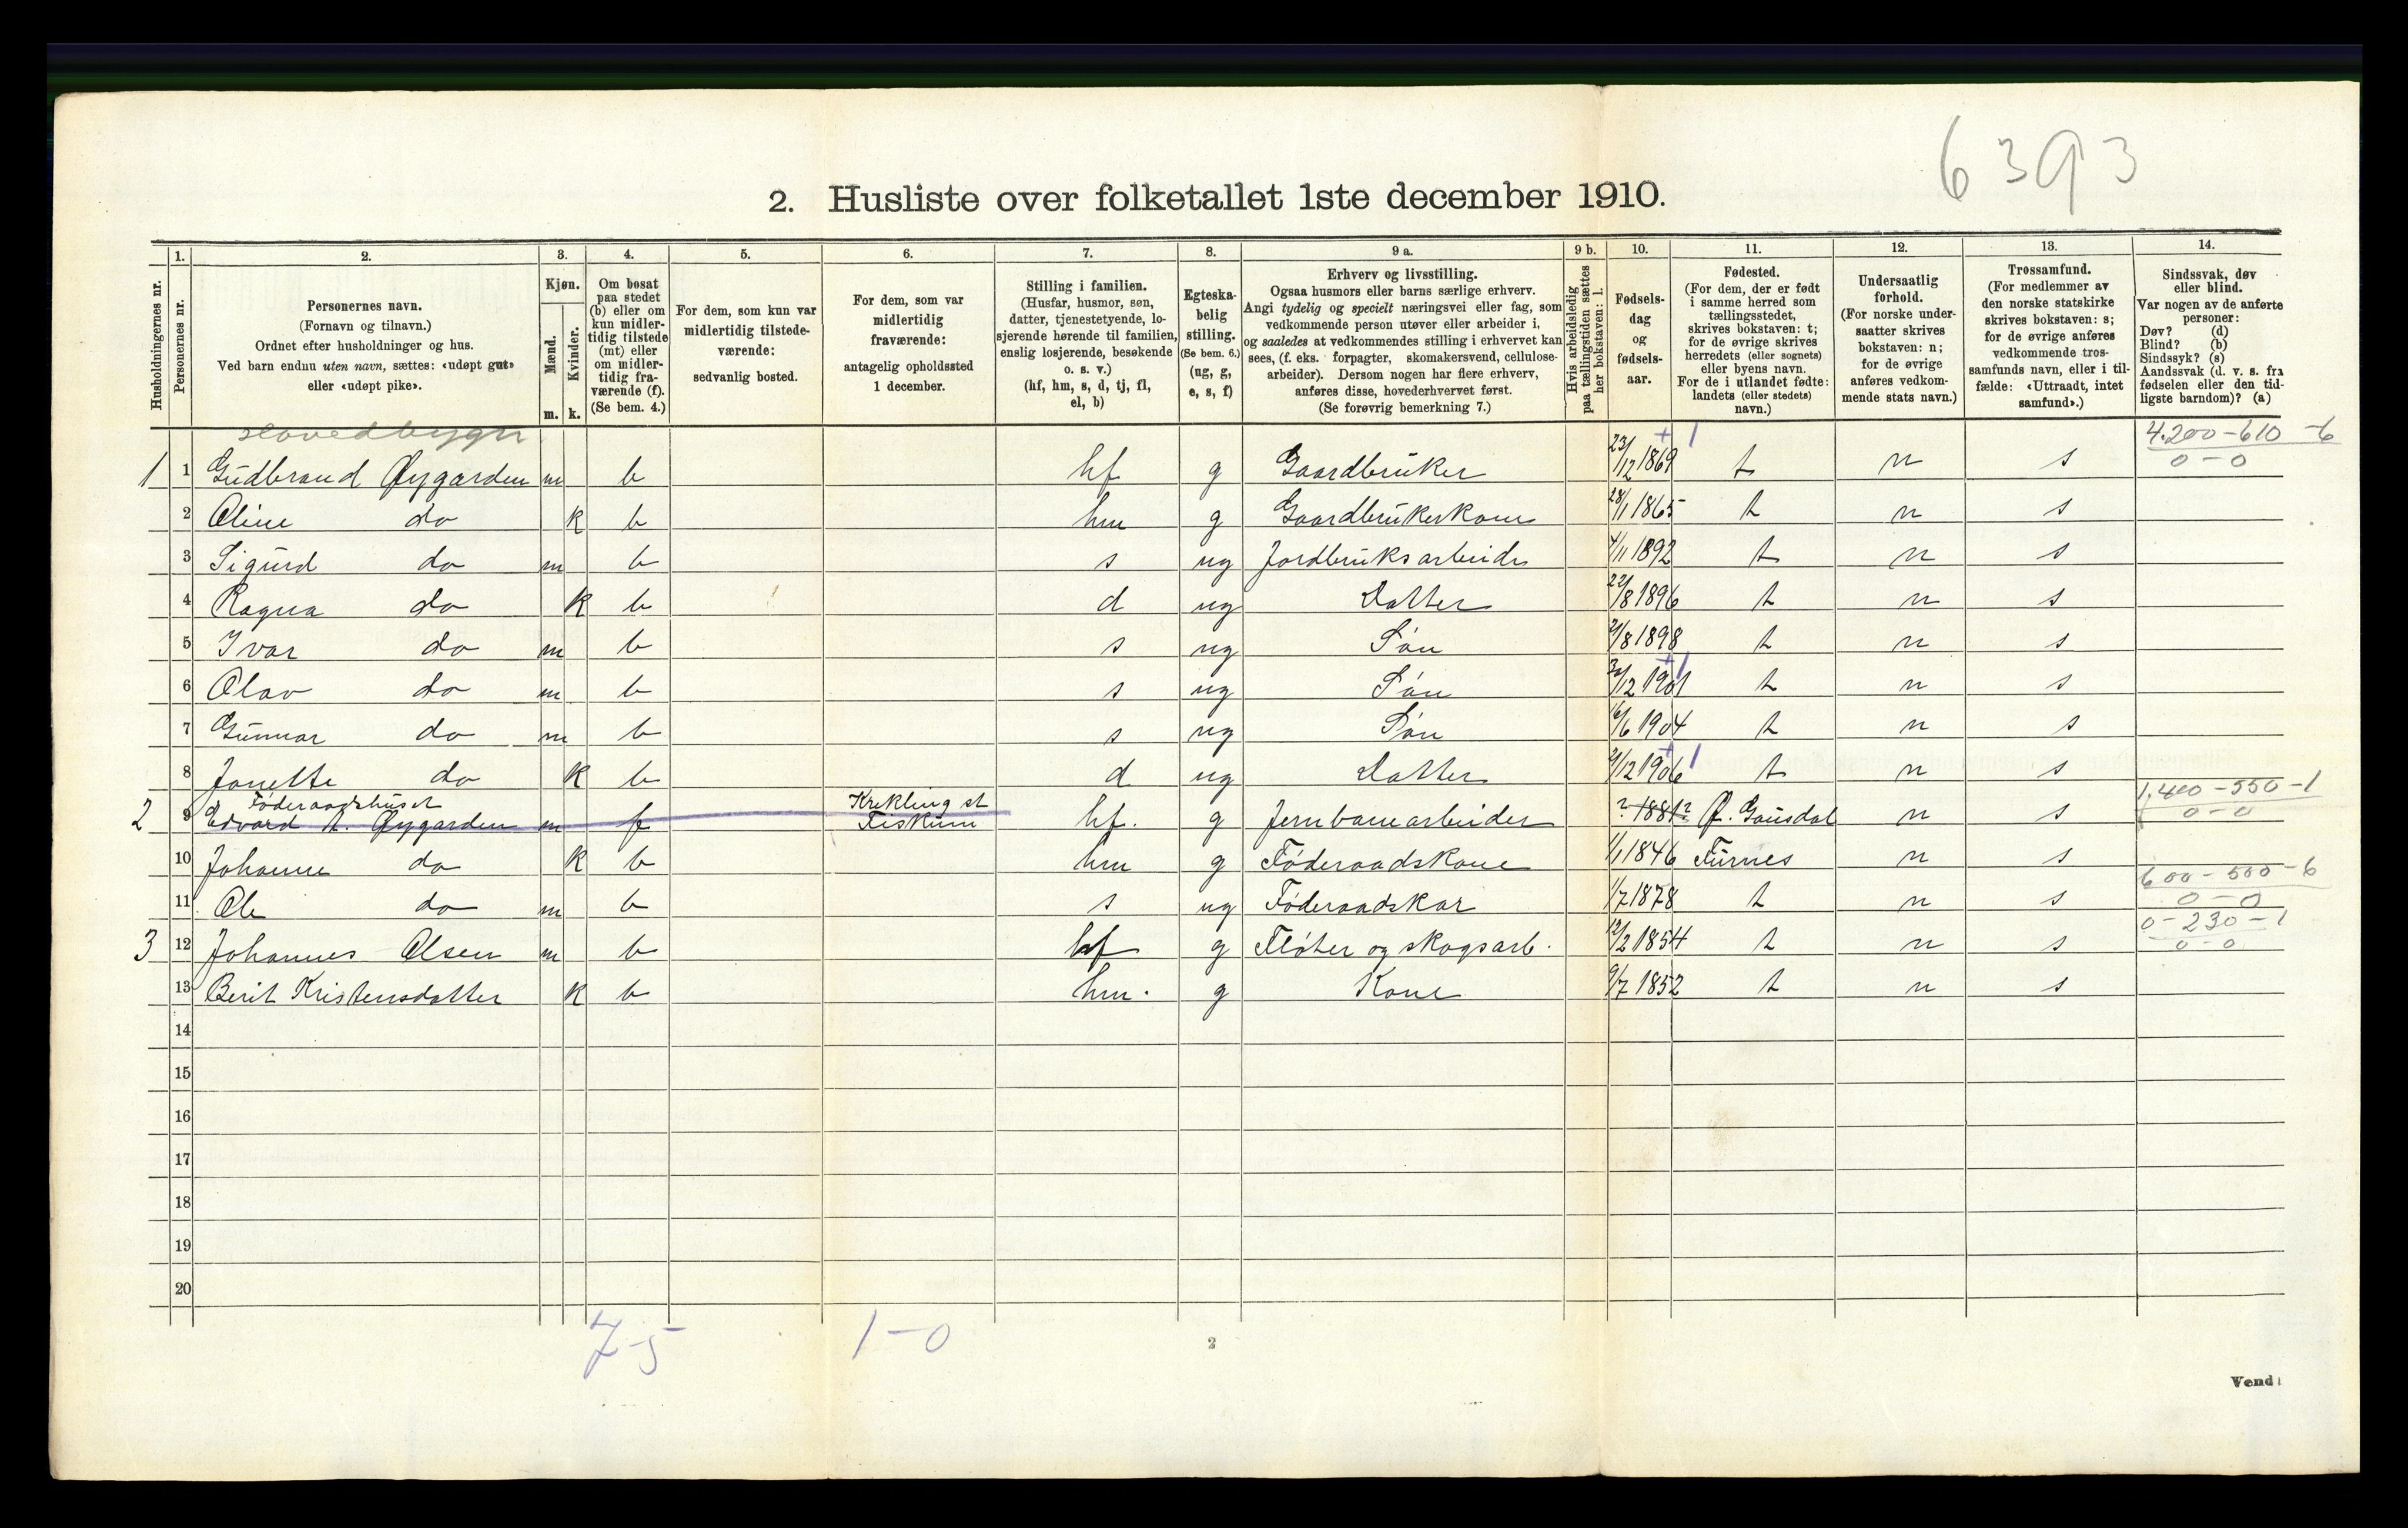 6393
2. Husliste over folketallet 1ste december 1910.
Husholdningernes nr.
1. Personernes nr.
2. Personernes navn.
(Fornavn og tilnavn.)
Ordnet efter husholdninger og hus.
Ved barn endnu uten navn, sættes: «udøpt gut»
eller «udøpt pike».
3. Kjøn.
Mænd. m.
Kvinder. k.
4. Om bosat
paa stedet
(b) eller om
kun midler-
tidig tilstede
(mt) eller
om midler-
tidig fra-
værende (f).
(Se bem. 4.)
5. For dem, som kun var
midlertidig tilstede-
værende:
sedvanlig bosted.
6. For dem, som var
midlertidig
fraværende:
antagelig opholdssted
1 december.
7. Stilling i familien.
(Husfar, husmor, søn,
datter, tjenestetyende, lo-
sjerende hørende til familien,
enslig losjerende, besøkende
o. s. v.)
(hf, hm, s, d, tj, fl,
el, b)
8. Egteska-
belig
stilling.
(Se bem. 6.)
(ug, g,
e, s, f)
9 a. Erhverv og livsstilling.
Ogsaa husmors eller barns særlige erhverv.
Angi tydelig og specielt næringsvei eller fag, som
vedkommende person utøver eller arbeider i,
og saaledes at vedkommendes stilling i erhvervet kan
sees, (f. eks. forpagter, skomakersvend, cellulose-
arbeider). Dersom nogen har flere erhverv,
anføres disse, hovederhvervet først.
(Se forøvrig bemerkning 7.)
9 b. Hvis arbeidsledig
paa tællingstiden sættes
her bokstaven: l.
10. Fødsels-
dag
og
fødsels-
aar.
11. Fødested.
(For dem, der er født
i samme herred som
tællingsstedet,
skrives bokstaven: t;
for de øvrige skrives
herredets (eller sognets)
eller byens navn.
For de i utlandet fødte:
landets (eller stedets)
navn.)
12. Undersaatlig
forhold.
(For norske under-
saatter skrives
bokstaven: n;
for de øvrige
anføres vedkom-
mende stats navn.)
13. Trossamfund.
(For medlemmer av
den norske statskirke
skrives bokstaven: s;
for de øvrige anføres
vedkommende tros-
samfunds navn, eller i til-
fælde: «Uttraadt, intet
samfund».)
14. Sindssvak, døv
eller blind.
Var nogen av de anførte
personer:
Døv? (d)
Blind? (b)
Sindssyk? (s)
Aandssvak (d. v. s. fra
fødselen eller den tid-
ligste barndom)? (a)
Hovedbygn
4.200-610-6
1 1 Gudbrand Øygarden m b hf g Gaardbruker 23/12 1869 + 1 t n s 0-0
2 Oline do k b hm g Gaardbrukerkone 28/1 1865 t n s
3 Sigurd do m b s ug Jordbruksarbeider 4/11 1892 t n s
4 Ragna do k b d ug Datter 22/8 1896 t n s
5 Ivar do m b s ug Søn 21/8 1898 t n s
6 Olav do m b s ug Søn 30/12 1901 + 1 t n s
7 Gunnar do m b s ug Søn 16/6 1904 t n s
8 Janette do k b d ug Datter 21/12 1906 + 1 t n s
Føderaadshuset Krekling st 1.400-550-1
2 9 Edvard A. Øygarden m f Fiskum hf. g Jernbanearbeider ? 1881? Ø. Gausdal n s 0-0
10 Johanne do k b hm g Føderaadskone 1/1 1846 Furnes n s
600-500-6
11 Ole do m b s ug Føderaadskar 1/7 1878 t n s 0-0
0-230-1
3 12 Johannes Olsen m b hf g Fløter og skogsarb. 12/2 1854 t n s 0-0
13 Berit Kristensdatter k b hm. g Kone 9/7 1852 t n s
14
15
16
17
18
19
20
7-5 1-0
2
Vend!